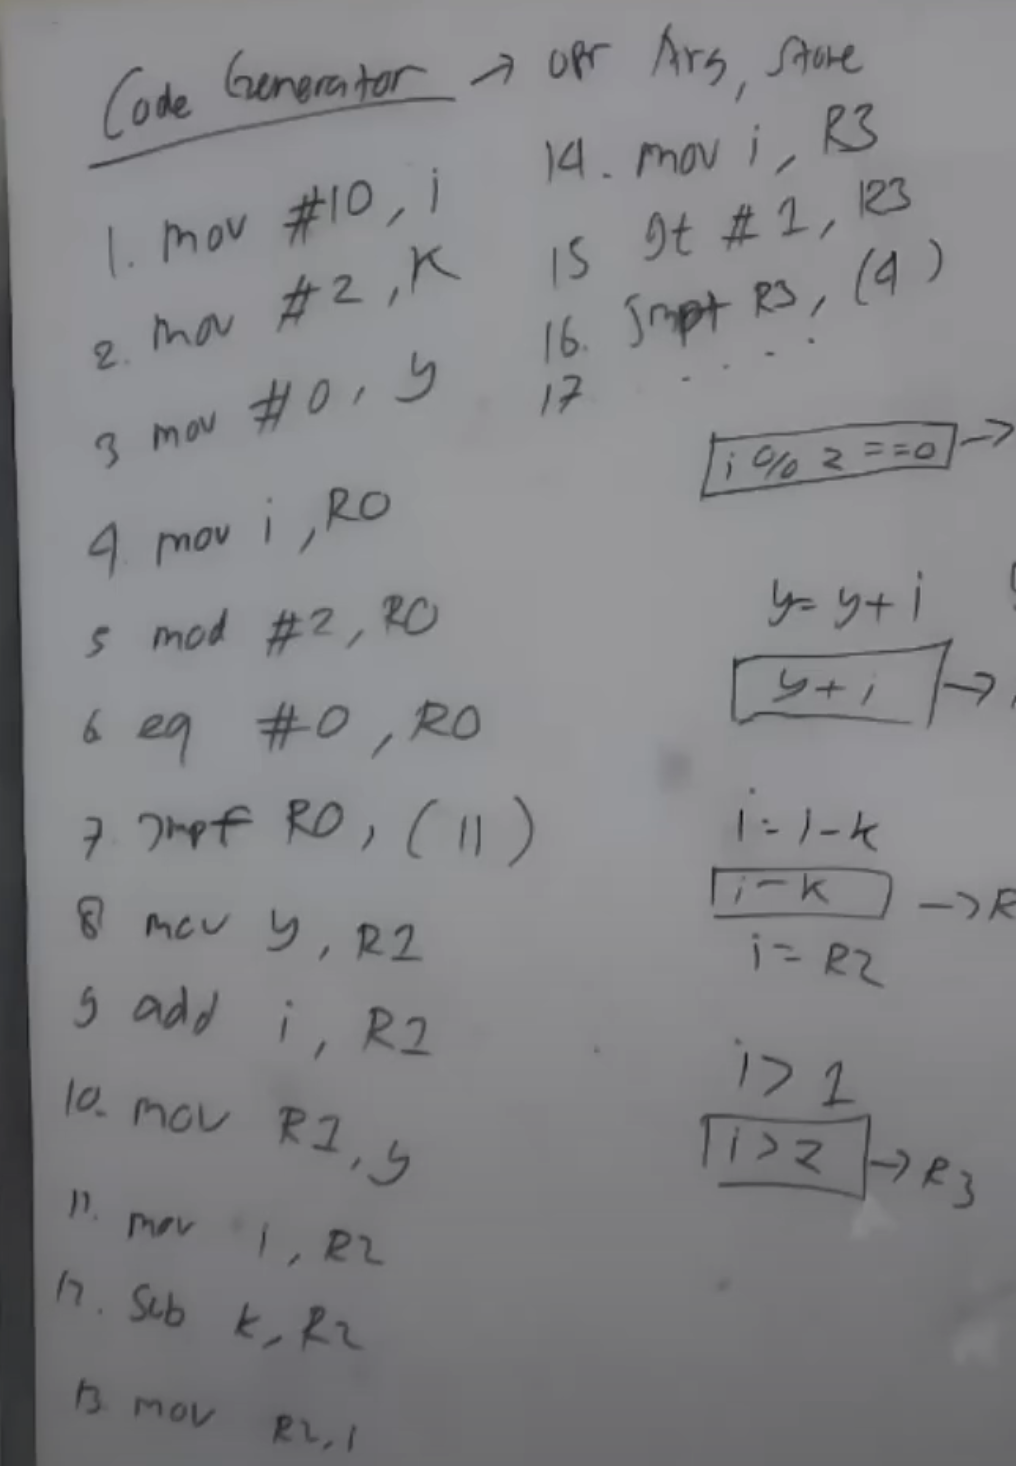 Code Generator → opr Arg, Store
1. mov #10, i
2. mov #2, K
3 mov #0, y
4. mov i, R0
5 mod #2, R0
6 eq #0, R0
7. Jmpf R0, (11)
8 mov y, R1
9 add i, R1
10. mov R1, y
11. mov i, R2
12. Sub k, R2
13. mov R2, i
14. mov i, R3
15 gt #1, R3
16. Jmpt R3, (4)
17 . . . .
i % 2 == 0 →
y = y + i
y + i →
i = i - k
i - k → R
i = R2
i > 1
i > 2 → R3